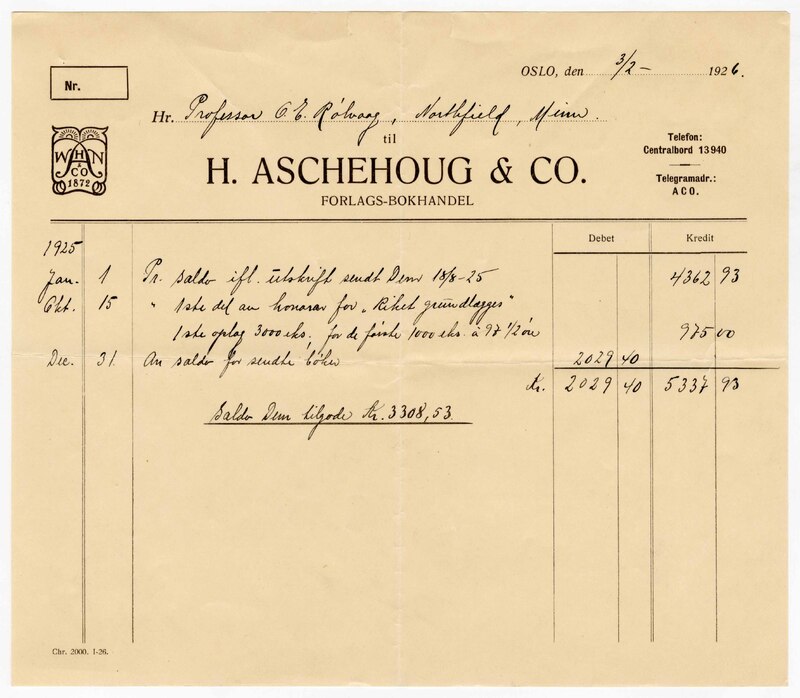 Nr.
OSLO, den 3/2 – 1926.
Hr. Professor O E. Rölvaag, Northfield, Minn.
til
W H N
A
& CO
1872
H. ASCHEHOUG & CO.
FORLAGS-BOKHANDEL
Telefon:
Centralbord 13940
Telegramadr.:
ACO.
Debet Kredit
1925
Jan. 1 Pr. saldo ifl. utskrift sendt Dem 18/8-25 4362 93
Okt. 15 " 1ste del av honorar for „Riket grundlægges"
1ste oplag 3000 eks., for de første 1000 eks. à 97 1/2 øre 975 00
Dec. 31 An saldo for sendte bøker 2029 40
Kr. 2029 40 5337 93
Saldo Dem tilgode Kr. 3308,53
Chr. 2000. 1-26.